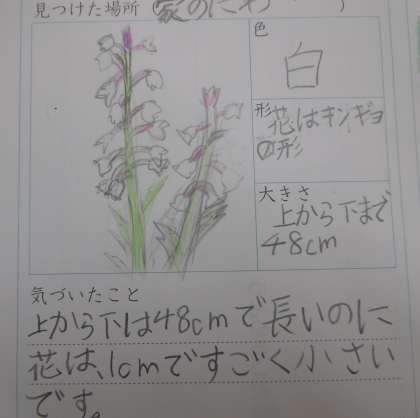 見つけた場所(家のにわ )
色
白
形
花はキンギョ
の形
大きさ
上から下まで
48cm
気づいたこと
上から下は48cmで長いのに
花は、1cmですごく小さい
です。